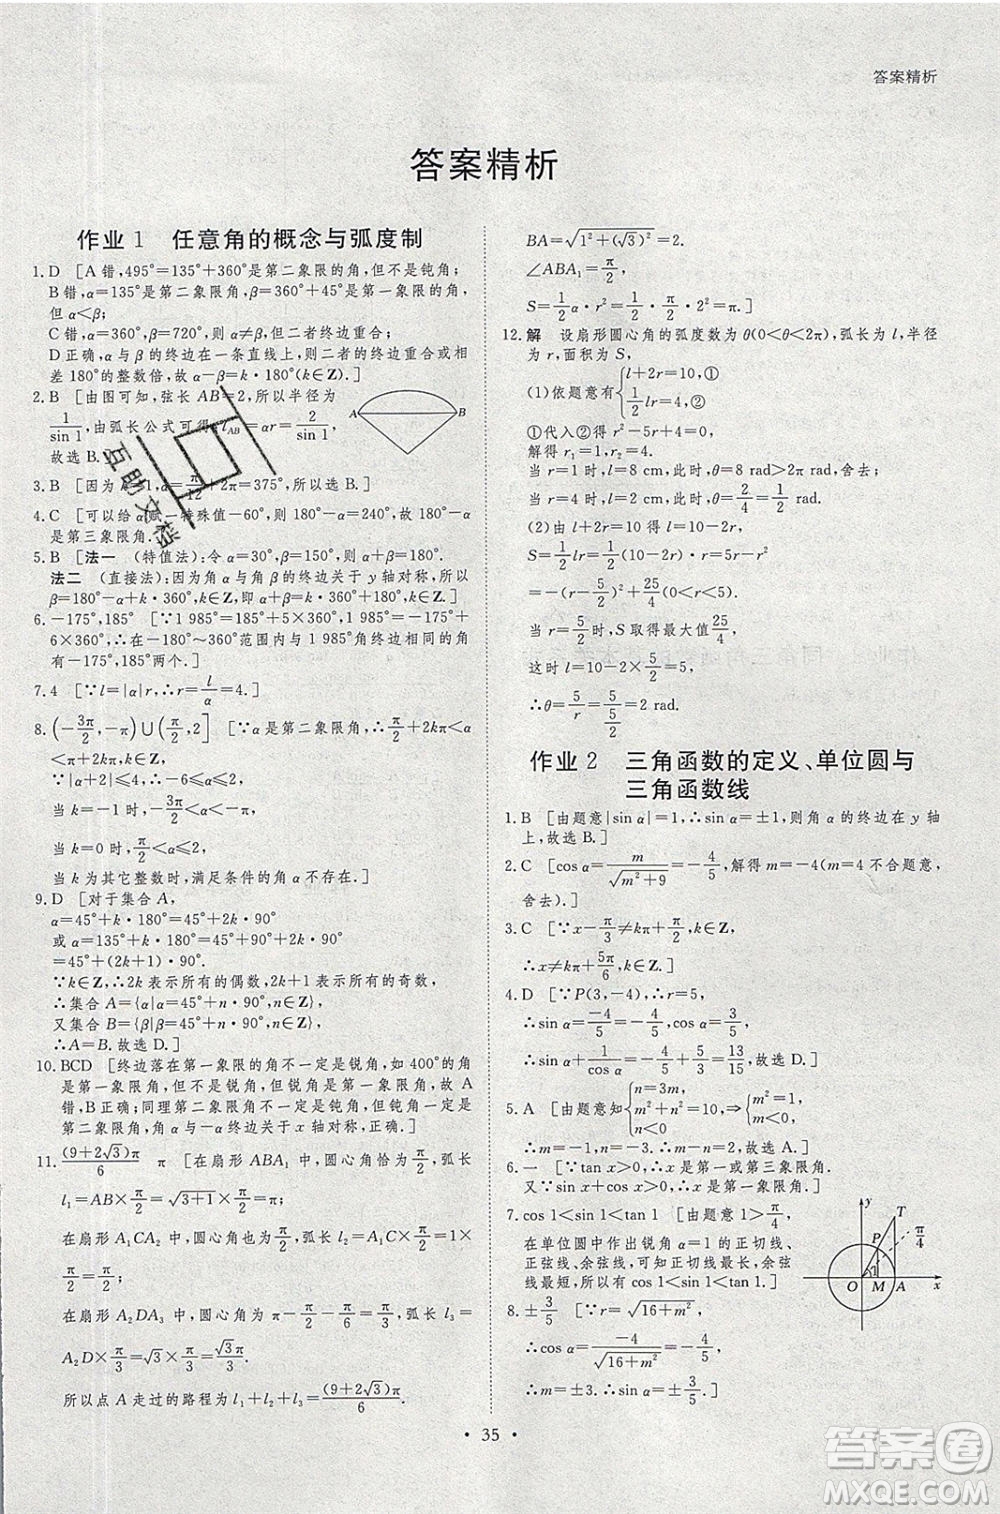 答案精析
答案精析
作业1 任意角的概念与弧度制
1.D [A错,495°=135°+360°是第二象限的角,但不是钝角;
B错,α=135°是第二象限角,β=360°+45°是第一象限角,
但α<β;
C错,α=360°,β=720°,则α≠β,但二者终边重合;
D正确,α与β的终边在一条直线上,则二者的终边重合或相
差180°的整数倍,故α-β=k·180°(k∈Z).]
2.B [由图可知,弦长AB=2,所以半径为
1/sin 1,由弧长公式可得l_AB=αr=2/sin 1,
故选B.]
A B
3.B [因为k=1,α=π/12+2π=375°,所以选B.]
4.C [可以给α赋一特殊值-60°,则180°-α=240°,故180°-α
是第三象限角.]
5.B [法一 (特值法):令α=30°,β=150°,则α+β=180°.
法二 (直接法):因为角α与角β的终边关于y轴对称,所以
β=180°-α+k·360°(k∈Z),即α+β=k·360°+180°,k∈Z.]
6.-175°,185° [∵-175°=1 985°-6×360°,1 985°=-175°+
6×360°,∴在-180°~360°范围内与1 985°角终边相同的角
有-175°,185°两个.]
7.4 [∵l=|α|r,∴r=l/α=4.]
8.(-3π/2,-π)∪(π/2,2] [∵α是第二象限角,∴π/2+2kπ<α
<π+2kπ,k∈Z.
∵|α+2|≤4,∴-6≤α≤2,
当k=-1时,-3π/2<α<-π,
当k=0时,π/2<α≤2,
当k为其它整数时,满足条件的角α不存在.]
9.D [对于集合A,
α=45°+k·180°=45°+2k·90°
或α=135°+k·180°=45°+90°+2k·90°
=45°+(2k+1)·90°.
∵k∈Z,∴2k表示所有的偶数,2k+1表示所有的奇数,
∴集合A={α|α=45°+n·90°,n∈Z},
又集合B={β|β=45°+k·90°,k∈Z},
∴A=B.故选D.]
10.BCD [终边落在第一象限的角不一定是锐角,如400°的角
是第一象限角,但不是锐角,但锐角一定是第一象限角,故A
错,B正确;同理第二象限角不一定是钝角,但钝角一定是第
二象限角,C正确.角α与-α的终边关于x轴对称,D正确.]
11.(9+2√3)π/6 π [在扇形ABA₁中,圆心角恰为π/2,弧长
l₁=AB×π/2=√(3+1)×π/2=π.
在扇形A₁CA₂中,圆心角也为π/2,弧长l₂=A₁C×π/2=1×
π/2=π/2.
在扇形A₂DA₃中,圆心角为π-π/2-π/6=π/3,弧长l₃=
A₂D×π/3=√3×π/3=√3/3π.
所以点A走过的路程为l₁+l₂+l₃=(9+2√3)π/6.
BA=√(1²+(√3)²)=2.
∠ABA₁=π/2,
S=1/2α·r²=1/2·π/2·2²=π.]
12.解 设扇形圆心角的弧度数为θ(0<θ<2π),弧长为l,半径
为r,面积为S,
(1)依题意有{l+2r=10,① 1/2lr=4,②
①代入②得r²-5r+4=0,
解得r₁=1,r₂=4.
当r=1时,l=8 cm,此时,θ=8 rad>2π rad,舍去;
当r=4时,l=2 cm,此时,θ=2/4=1/2 rad.
(2)由l+2r=10得l=10-2r,
S=1/2lr=1/2(10-2r)·r=5r-r²
=-(r-5/2)²+25/4(0<r<5).
当r=5/2时,S取得最大值25/4,
这时l=10-2×5/2=5,
∴θ=l/r=5/(5/2)=2 rad.
作业2 三角函数的定义、单位圆与
三角函数线
1.B [由题意|sin α|=1,∴sin α=±1,则角α的终边在y轴
上,故选B.]
2.C [cos α=m/√(m²+9)=-4/5,解得m=-4(m=4不合题意,
舍去).]
3.C [∵x-π/3≠kπ+π/2,k∈Z,
∴x≠kπ+5π/6,k∈Z.]
4.D [∵P(3,-4),∴r=5,
∴sin α=-4/5=-4/5,cos α=3/5,
∴1/5-sin α+cos α/5=1/5+4/5+3/25
5.A [由题意知{n=3m, m²+n²=10, n<0 ⇒{m=-1, n=-3,
∴m-n=-1+3=2.故选A.]
6.一 [∵tan x>0,∴x是第一或第三象限角.
又∵sin x+cos x>0,∴x是第一象限角.]
7.cos 1<sin 1<tan 1 [由题意1>π/4,
在单位圆中作出锐角α=1的正切线、
正弦线、余弦线,可知正切线最长,余弦
线最短,所以有cos 1<sin 1<tan 1.]
y T P π/4 1 O M A x
8.±3/5 [∵r=√(16+m²),
∴cos α=-4/√(16+m²)=-4/5,
∴m=±3.∴sin α=±3/5.]
35
互助文档
答案圈
MXQE.COM